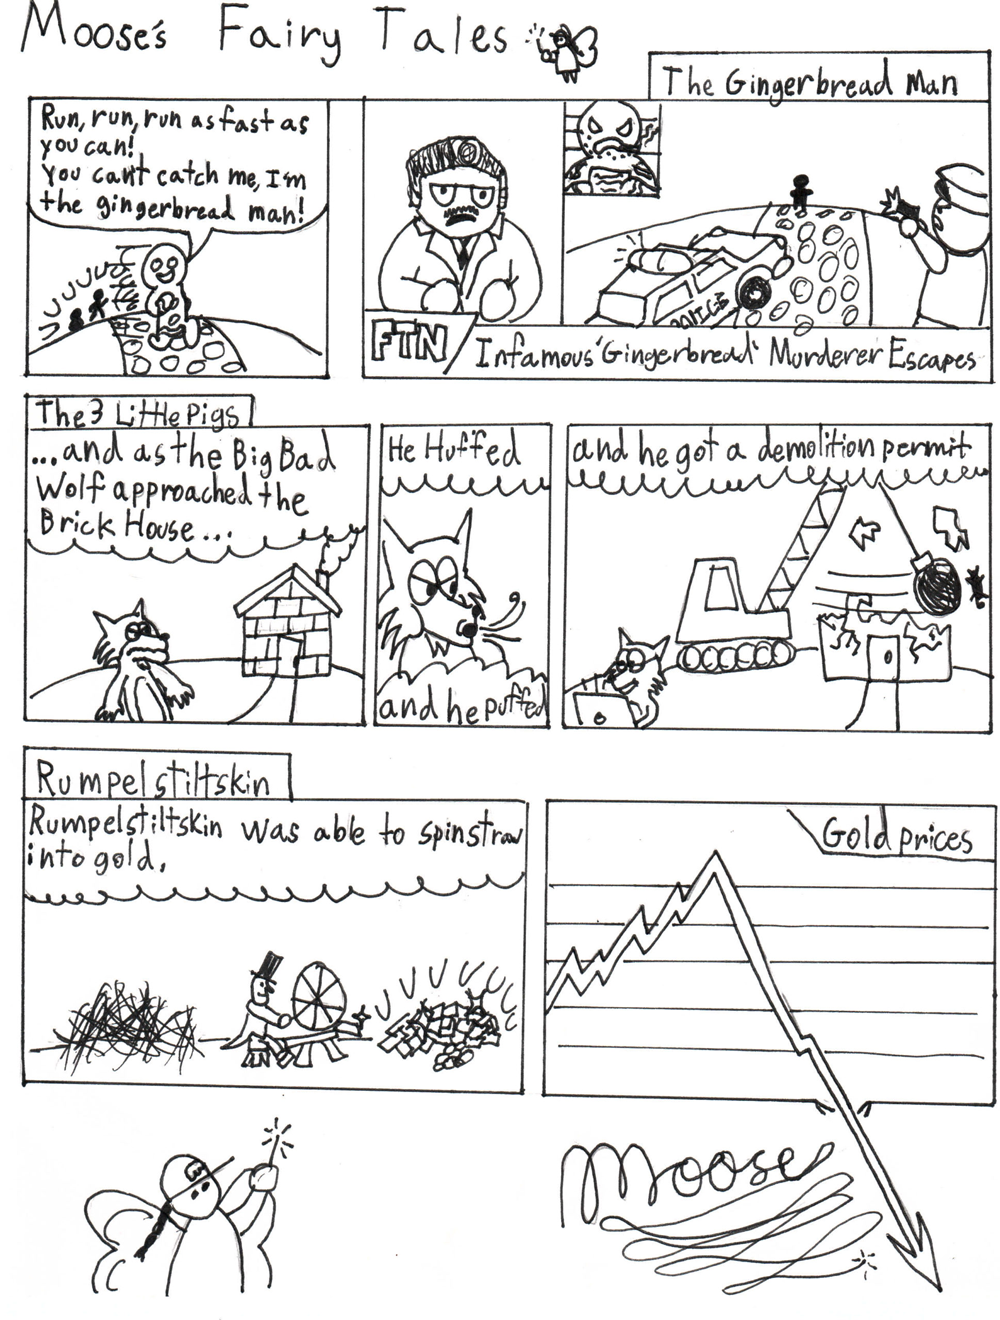 Moose's Fairy Tales
The Gingerbread Man
Run, run, run as fast as
you can!
You can't catch me, I'm
the gingerbread man!
FTN
Infamous 'Gingerbread' Murderer Escapes
The 3 Little Pigs
...and as the Big Bad
Wolf approached the
Brick House...
He Huffed
and he puffed
and he got a demolition permit
Rumpelstiltskin
Rumpelstiltskin was able to spin straw
into gold.
Gold prices
Moose